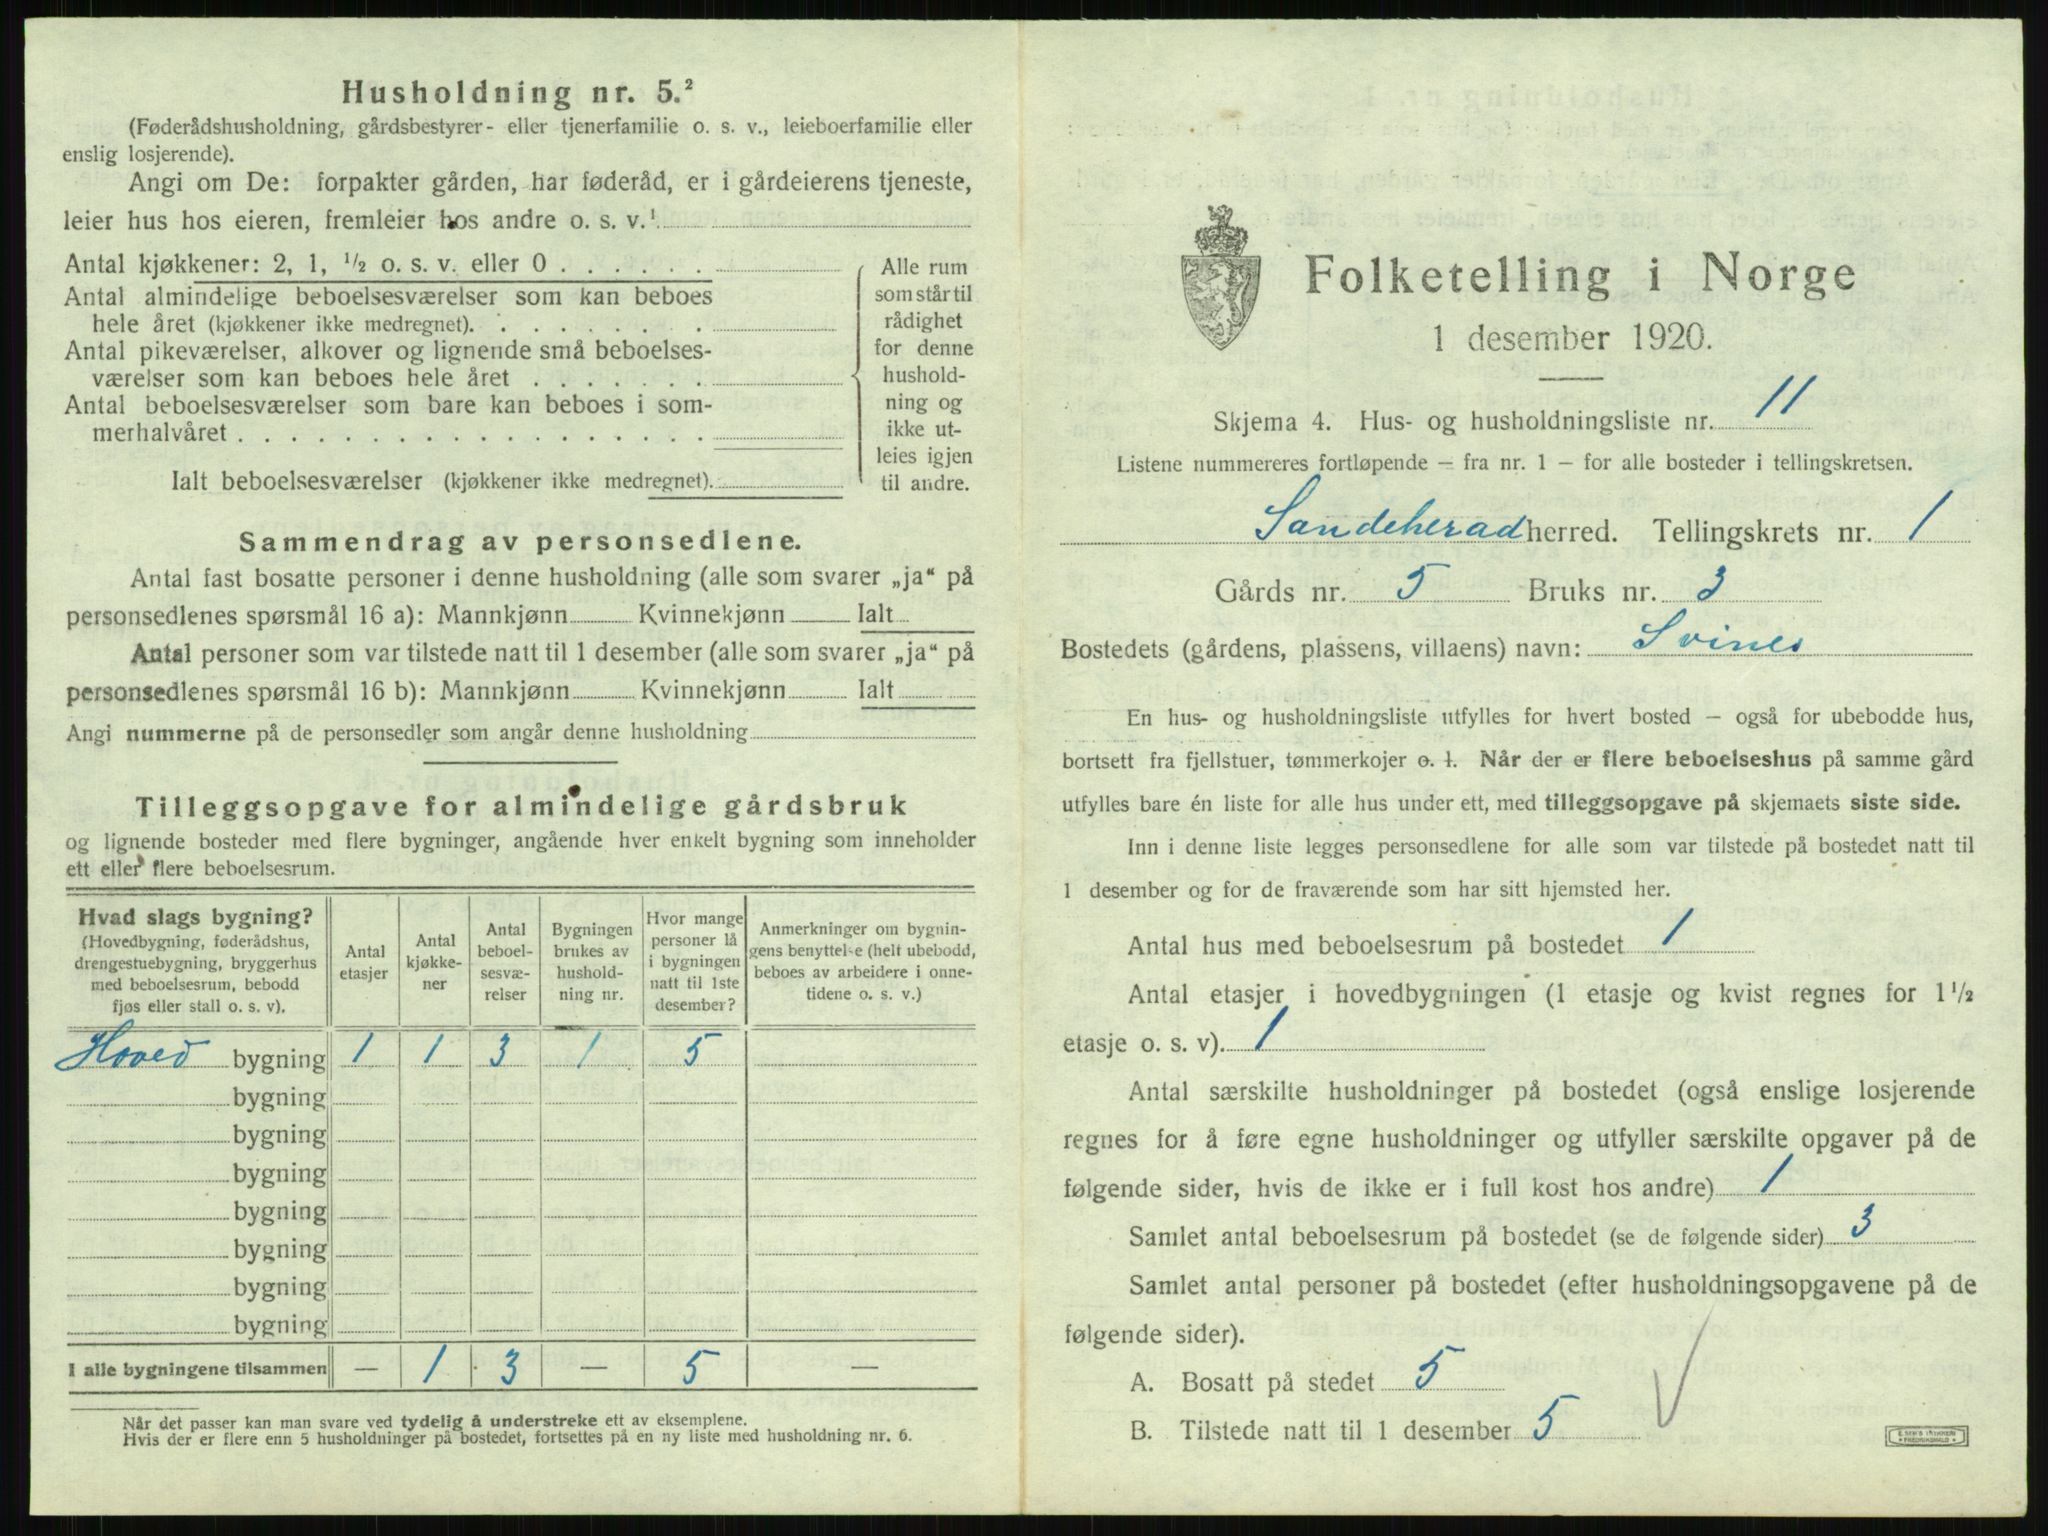 Husholdning nr. 5.²
(Føderådshusholdning, gårdsbestyrer- eller tjenerfamilie o. s. v., leieboerfamilie eller
enslig losjerende).
Angi om De: forpakter gården, har føderåd, er i gårdeierens tjeneste,
leier hus hos eieren, fremleier hos andre o. s. v.¹
Antal kjøkkener: 2, 1, ½ o. s. v. eller 0 . . . . . .
Antal almindelige beboelsesværelser som kan beboes
hele året (kjøkkener ikke medregnet). . . . . . . .
Antal pikeværelser, alkover og lignende små beboelses-
værelser som kan beboes hele året . . . . . . .
Antal beboelsesværelser som bare kan beboes i som-
merhalvåret . . . . . . . . . . . . . . . . . .
Ialt beboelsesværelser (kjøkkener ikke medregnet).
Alle rum
som står til
rådighet
for denne
hushold-
ning og
ikke ut-
leies igjen
til andre.
Sammendrag av personsedlene.
Antal fast bosatte personer i denne husholdning (alle som svarer „ja“ på
personsedlenes spørsmål 16 a): Mannkjønn Kvinnekjønn Ialt
Antal personer som var tilstede natt til 1 desember (alle som svarer „ja“ på
personsedlenes spørsmål 16 b): Mannkjønn Kvinnekjønn Ialt
Angi nummerne på de personsedler som angår denne husholdning
Tilleggsopgave for almindelige gårdsbruk
og lignende bosteder med flere bygninger, angående hver enkelt bygning som inneholder
ett eller flere beboelsesrum.
Hvad slags bygning?
(Hovedbygning, føderådshus,
drengestuebygning, bryggerhus
med beboelsesrum, bebodd
fjøs eller stall o. s. v).
Antal
etasjer
Antal
kjøkke-
ner
Antal
beboel-
sesvæ-
relser
Bygningen
brukes av
hushold-
ning nr.
Hvor mange
personer lå
i bygningen
natt til 1ste
desember?
Anmerkninger om bygnin-
gens benyttelse (helt ubebodd,
beboes av arbeidere i onne-
tidene o. s. v.)
Hoved bygning 1 1 3 1 5
bygning
bygning
bygning
bygning
bygning
bygning
bygning
I alle bygningene tilsammen — 1 3 — 5 —
Når det passer kan man svare ved tydelig å understreke ett av eksemplene.
Hvis der er flere enn 5 husholdninger på bostedet, fortsettes på en ny liste med husholdning nr. 6.
Folketelling i Norge
1 desember 1920.
Skjema 4. Hus- og husholdningsliste nr. 11
Listene nummereres fortløpende – fra nr. 1 – for alle bosteder i tellingskretsen.
Sandeherad herred. Tellingskrets nr. 1
Gårds nr. 5 Bruks nr. 3
Bostedets (gårdens, plassens, villaens) navn: Svines
En hus- og husholdningsliste utfylles for hvert bosted – også for ubebodde hus,
bortsett fra fjellstuer, tømmerkojer o. l. Når der er flere beboelseshus på samme gård
utfylles bare én liste for alle hus under ett, med tilleggsopgave på skjemaets siste side.
Inn i denne liste legges personsedlene for alle som var tilstede på bostedet natt til
1 desember og for de fraværende som har sitt hjemsted her.
Antal hus med beboelsesrum på bostedet 1
Antal etasjer i hovedbygningen (1 etasje og kvist regnes for 1½
etasje o. s. v). 1
Antal særskilte husholdninger på bostedet (også enslige losjerende
regnes for å føre egne husholdninger og utfyller særskilte opgaver på de
følgende sider, hvis de ikke er i full kost hos andre) 1
Samlet antal beboelsesrum på bostedet (se de følgende sider) 3
Samlet antal personer på bostedet (efter husholdningsopgavene på de
følgende sider).
A. Bosatt på stedet 5
B. Tilstede natt til 1 desember 5